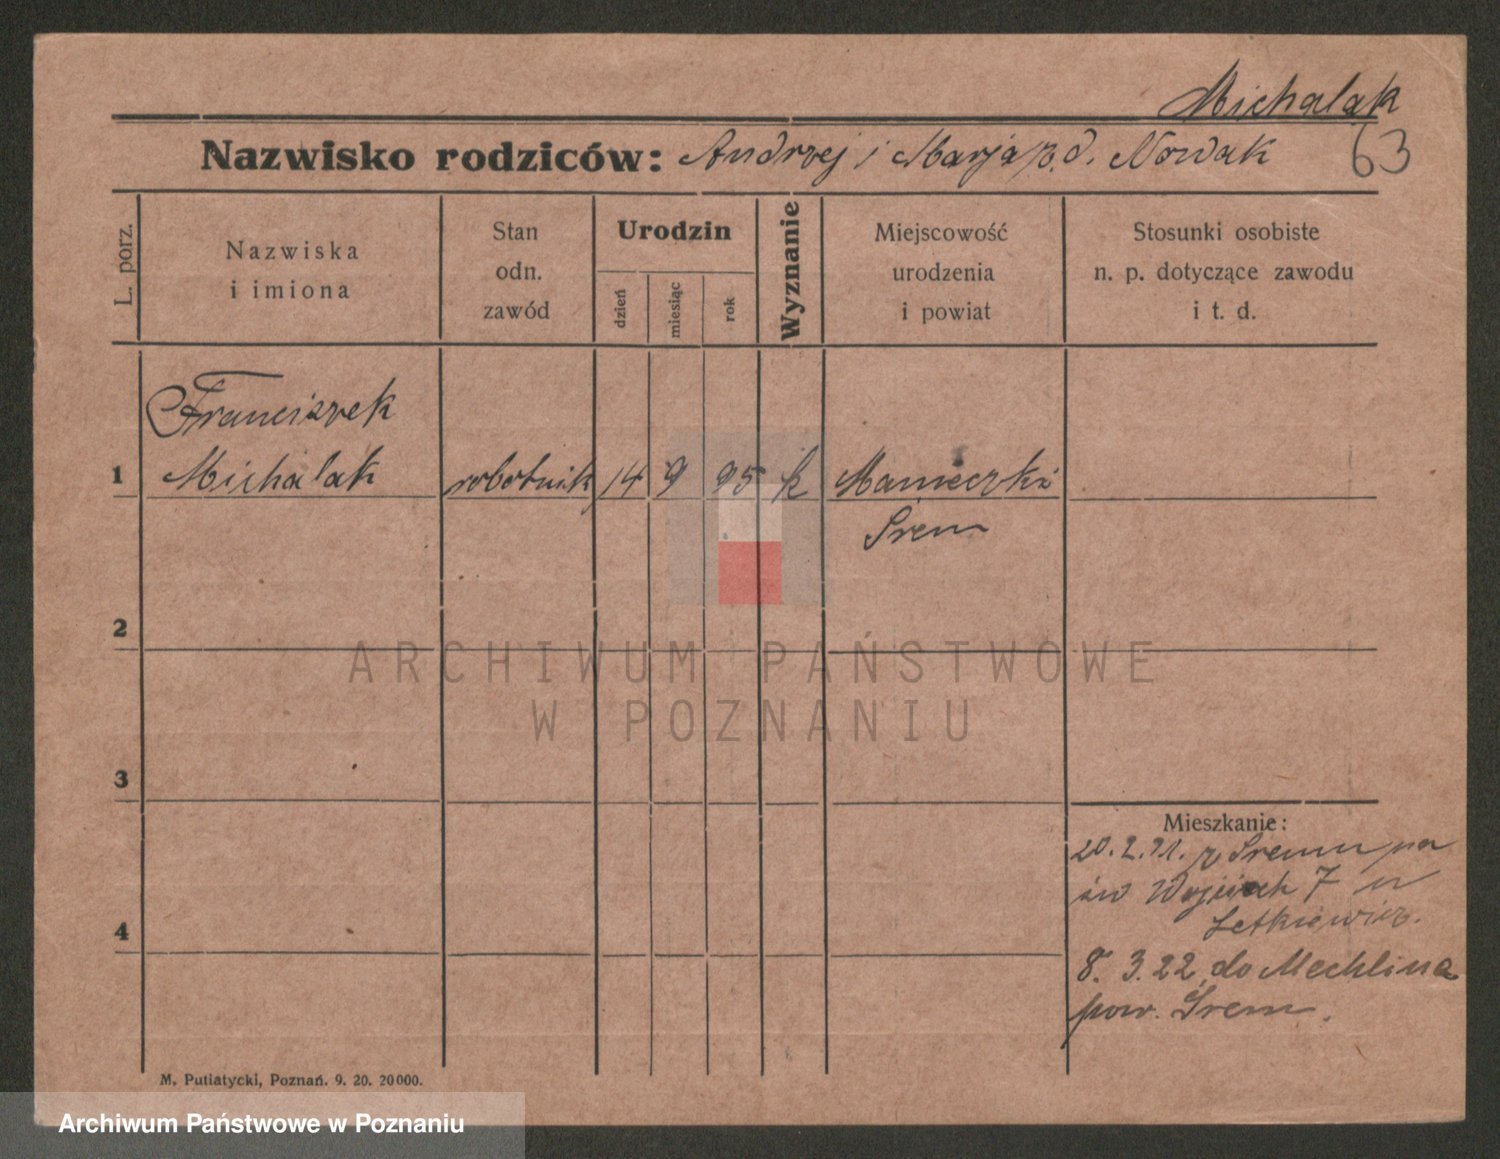 Michalak
63
Nazwisko rodziców: Andrzej i Marja p. d. Nowak
L. porz.
Nazwiska
i imiona
Stan
odn.
zawód
Urodzin
dzień
miesiąc
rok
Wyznanie
Miejscowość
urodzenia
i powiat
Stosunki osobiste
n. p. dotyczące zawodu
i t. d.
Franciszek
1 Michalak robotnik 14 9 95 k Manieczki
Śrem
2
ARCHIWUM PAŃSTWOWE
W POZNANIU
3
Mieszkanie:
20. 2. 21. z Śremu na
św Wojciech 7 u
4
8. 3. 22 do Mechlina
pow. Śrem.
M. Putiatycki, Poznań. 9. 20. 20000.
Archiwum Państwowe w Poznaniu